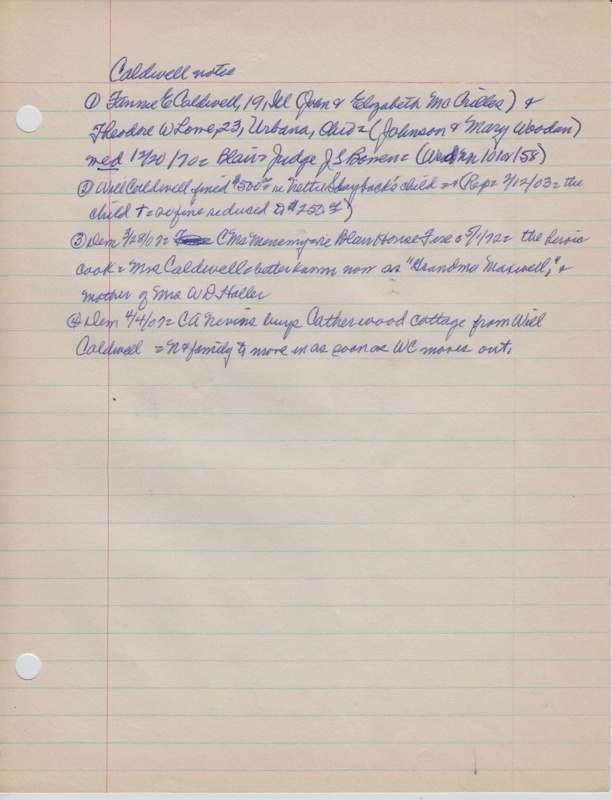 Caldwell notes
① Fannie E Caldwell, 19, Ill (John & Elizabeth McCrilles) &
Theodore W Lowe, 23, Urbana, Ohio = (Johnson & Mary Wooden)
med 12/20/70 = Blair = Judge J S Bowen = (Wed Rn 1012/158)
② Will Caldwell fined $500 re Nettie Slayback's child = (Rep = 2/12/03 = the
child † = so fine reduced to $250)
③ Dem 3/28/07 = C McMenemy re Blair House Fire 5/1/72 = the heroic
cook = Mrs Caldwell = better known now as "Grandma Maxwell," &
mother of Mrs W D Haller
④ Dem 4/4/07 = C A Nevins buys Catherwood cottage from Will
Caldwell = N & family to move in as soon as WC moves out.